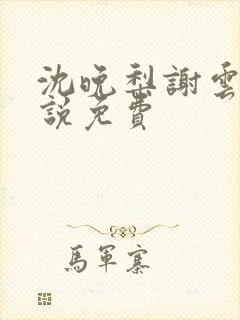 沈晚梨謝雲
說免費
馬軍寨